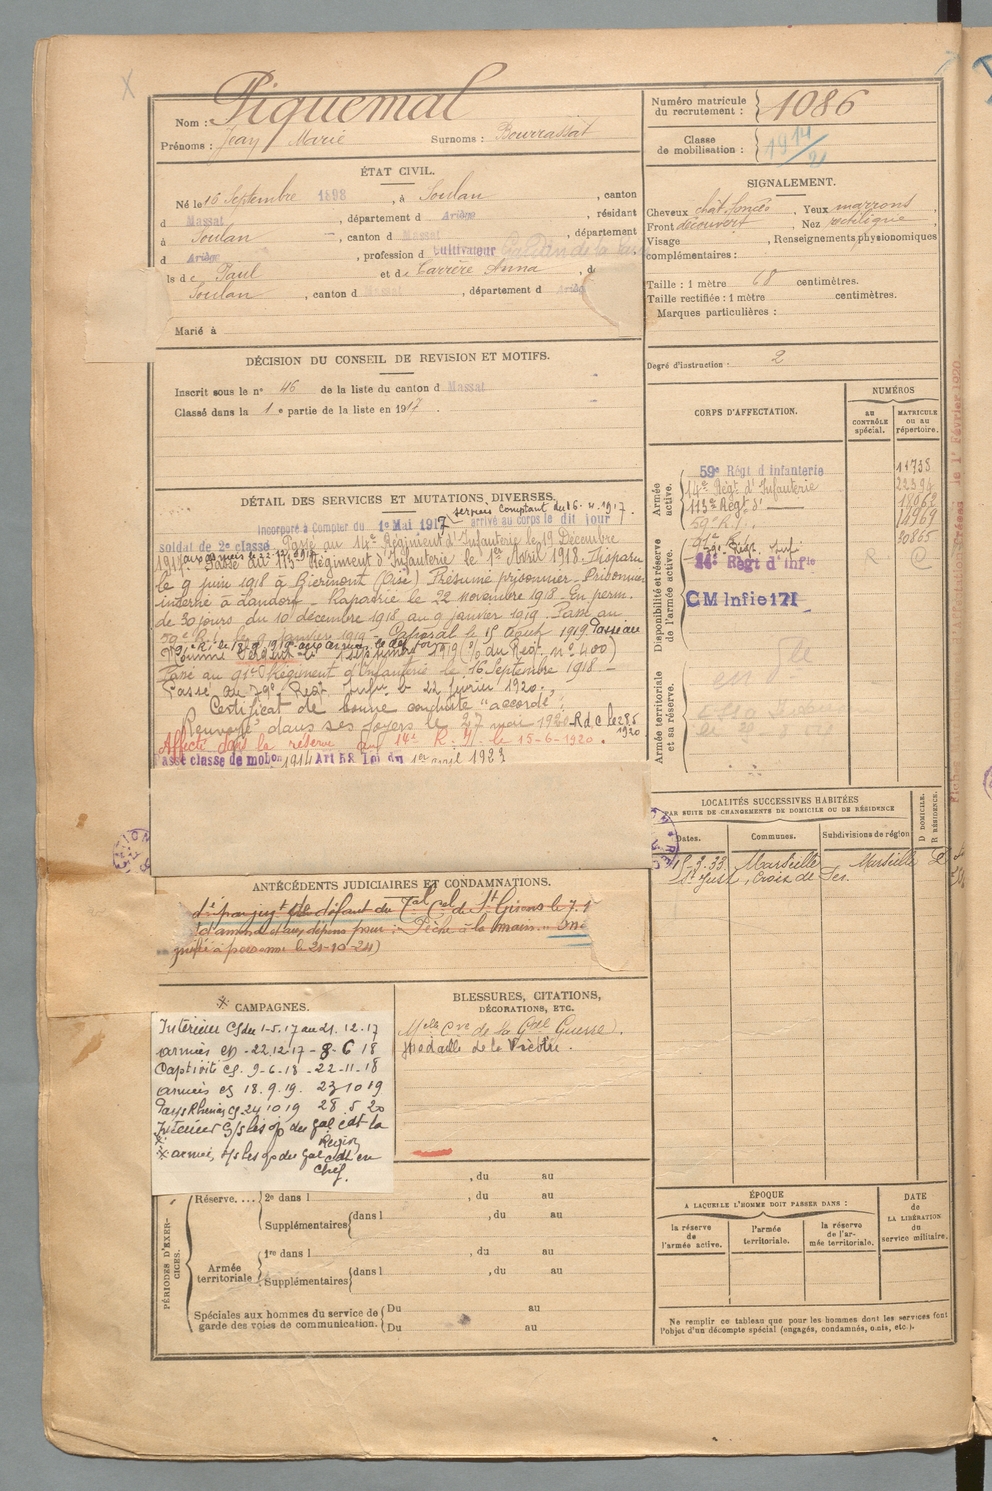 Nom : Piquemal
Prénoms : Jean Marie Surnoms : Bourrassat
Numéro matricule du recrutement : 1086
Classe de mobilisation : 1914/21
ÉTAT CIVIL.
Né le 16 Septembre 1898, à Soulan, canton
d Massat, département d Ariège, résidant
à Soulan, canton d Massat, département
d Ariège, profession d cultivateur
ls de Paul et de Carrère Anna, d
Soulan, canton d Massat, département d Ariège
Marié à
SIGNALEMENT.
Cheveux chât. foncés, Yeux marrons,
Front découvert, Nez rectiligne,
Visage , Renseignements physionomiques
complémentaires :
Taille : 1 mètre 68 centimètres.
Taille rectifiée : 1 mètre centimètres.
Marques particulières :
Degré d'instruction : 2
DÉCISION DU CONSEIL DE REVISION ET MOTIFS.
Inscrit sous le n° 46 de la liste du canton d Massat
Classé dans la 1e partie de la liste en 1917.
DÉTAIL DES SERVICES ET MUTATIONS DIVERSES.
services comptant du 16.4.1917.
Incorporé à Compter du 1er Mai 1917 arrivé au corps le dit jour
soldat de 2e classe. Passé au 14e Régiment d'Infanterie le 19 Décembre
1917. Passé au 113e Régiment d'Infanterie le 1er Avril 1918. Disparu
le 9 juin 1918 à Biermont (Oise) Présumé prisonnier. Prisonnier
interné à Landorf. Rapatrié le 22 novembre 1918. En perm.
de 30 jours du 10 décembre 1918 au 9 janvier 1919. Passé au
59e R.I. le 9 Janvier 1919. Caporal le 15 Août 1919 Passé au
Passé au 91e Régiment d'Infanterie le 16 Septembre 1918
Passé au 79e Régt. Infie le 22 février 1920.
Certificat de bonne conduite "accordé".
Renvoyé dans ses foyers le 27 mai 1920 R d C le 28.5
1920
Affecté dans la réserve au 14e R.I. le 15-6-1920.
asse classe de mobon 1914 Art 58 Loi du 1er avril 1923
CORPS D'AFFECTATION.
NUMÉROS
au CONTRÔLE spécial.
MATRICULE ou au répertoire.
Armée active.
59e Régt d'Infanterie 11738
14e Régt d'Infanterie 22394
113e Régt d° 18062
59e R.I. 14969
91e R.I. 20865
Disponibilité et réserve de l'armée active.
79e Régt Infie
14e Régt d'Infie
CM Infie 171
Armée territoriale et sa réserve.
LOCALITÉS SUCCESSIVES HABITÉES
PAR SUITE DE CHANGEMENTS DE DOMICILE OU DE RÉSIDENCE
Dates. Communes. Subdivisions de région D DOMICILE. R RÉSIDENCE.
5.2.33 Marseille Marseille
St Just, Croix de Fer.
ANTÉCÉDENTS JUDICIAIRES ET CONDAMNATIONS.
dé par jugt de défaut du Tal Cel de St Girons le 7.1
d'amende et aux dépens pour : "Pêche à la main"
à personne le 21-10-24)
CAMPAGNES.
Intérieur CS du 1-5.17 au 21.12.17
armées CD - 22.12.17 - 8-6 18
Captivité CS. 9-6-18 - 22-11-18
armées CS 18.9.19. 23 10 19
Pays Rhénans CS. 24 10 19 28 5 20
Intérieur S/s les op du gal cdt la
Région
armée, s/s les op du gal cdt en
Chef.
BLESSURES, CITATIONS,
DÉCORATIONS, ETC.
Melle Cve de la Gde Guerre.
Médaille de la Victoire.
PÉRIODES D'EXERCICES.
, du au
Réserve.... 2e dans l , du au
Supplémentaires dans l , du au
Armée territoriale 1re dans l , du au
Supplémentaires dans l , du au
Spéciales aux hommes du service de garde des voies de communication. Du au
Du au
ÉPOQUE
A LAQUELLE L'HOMME DOIT PASSER DANS :
la réserve de l'armée active.
l'armée territoriale.
la réserve de l'armée territoriale.
DATE de LA LIBÉRATION du service militaire.
Ne remplir ce tableau que pour les hommes dont les services font
l'objet d'un décompte spécial (engagés, condamnés, omis, etc.).